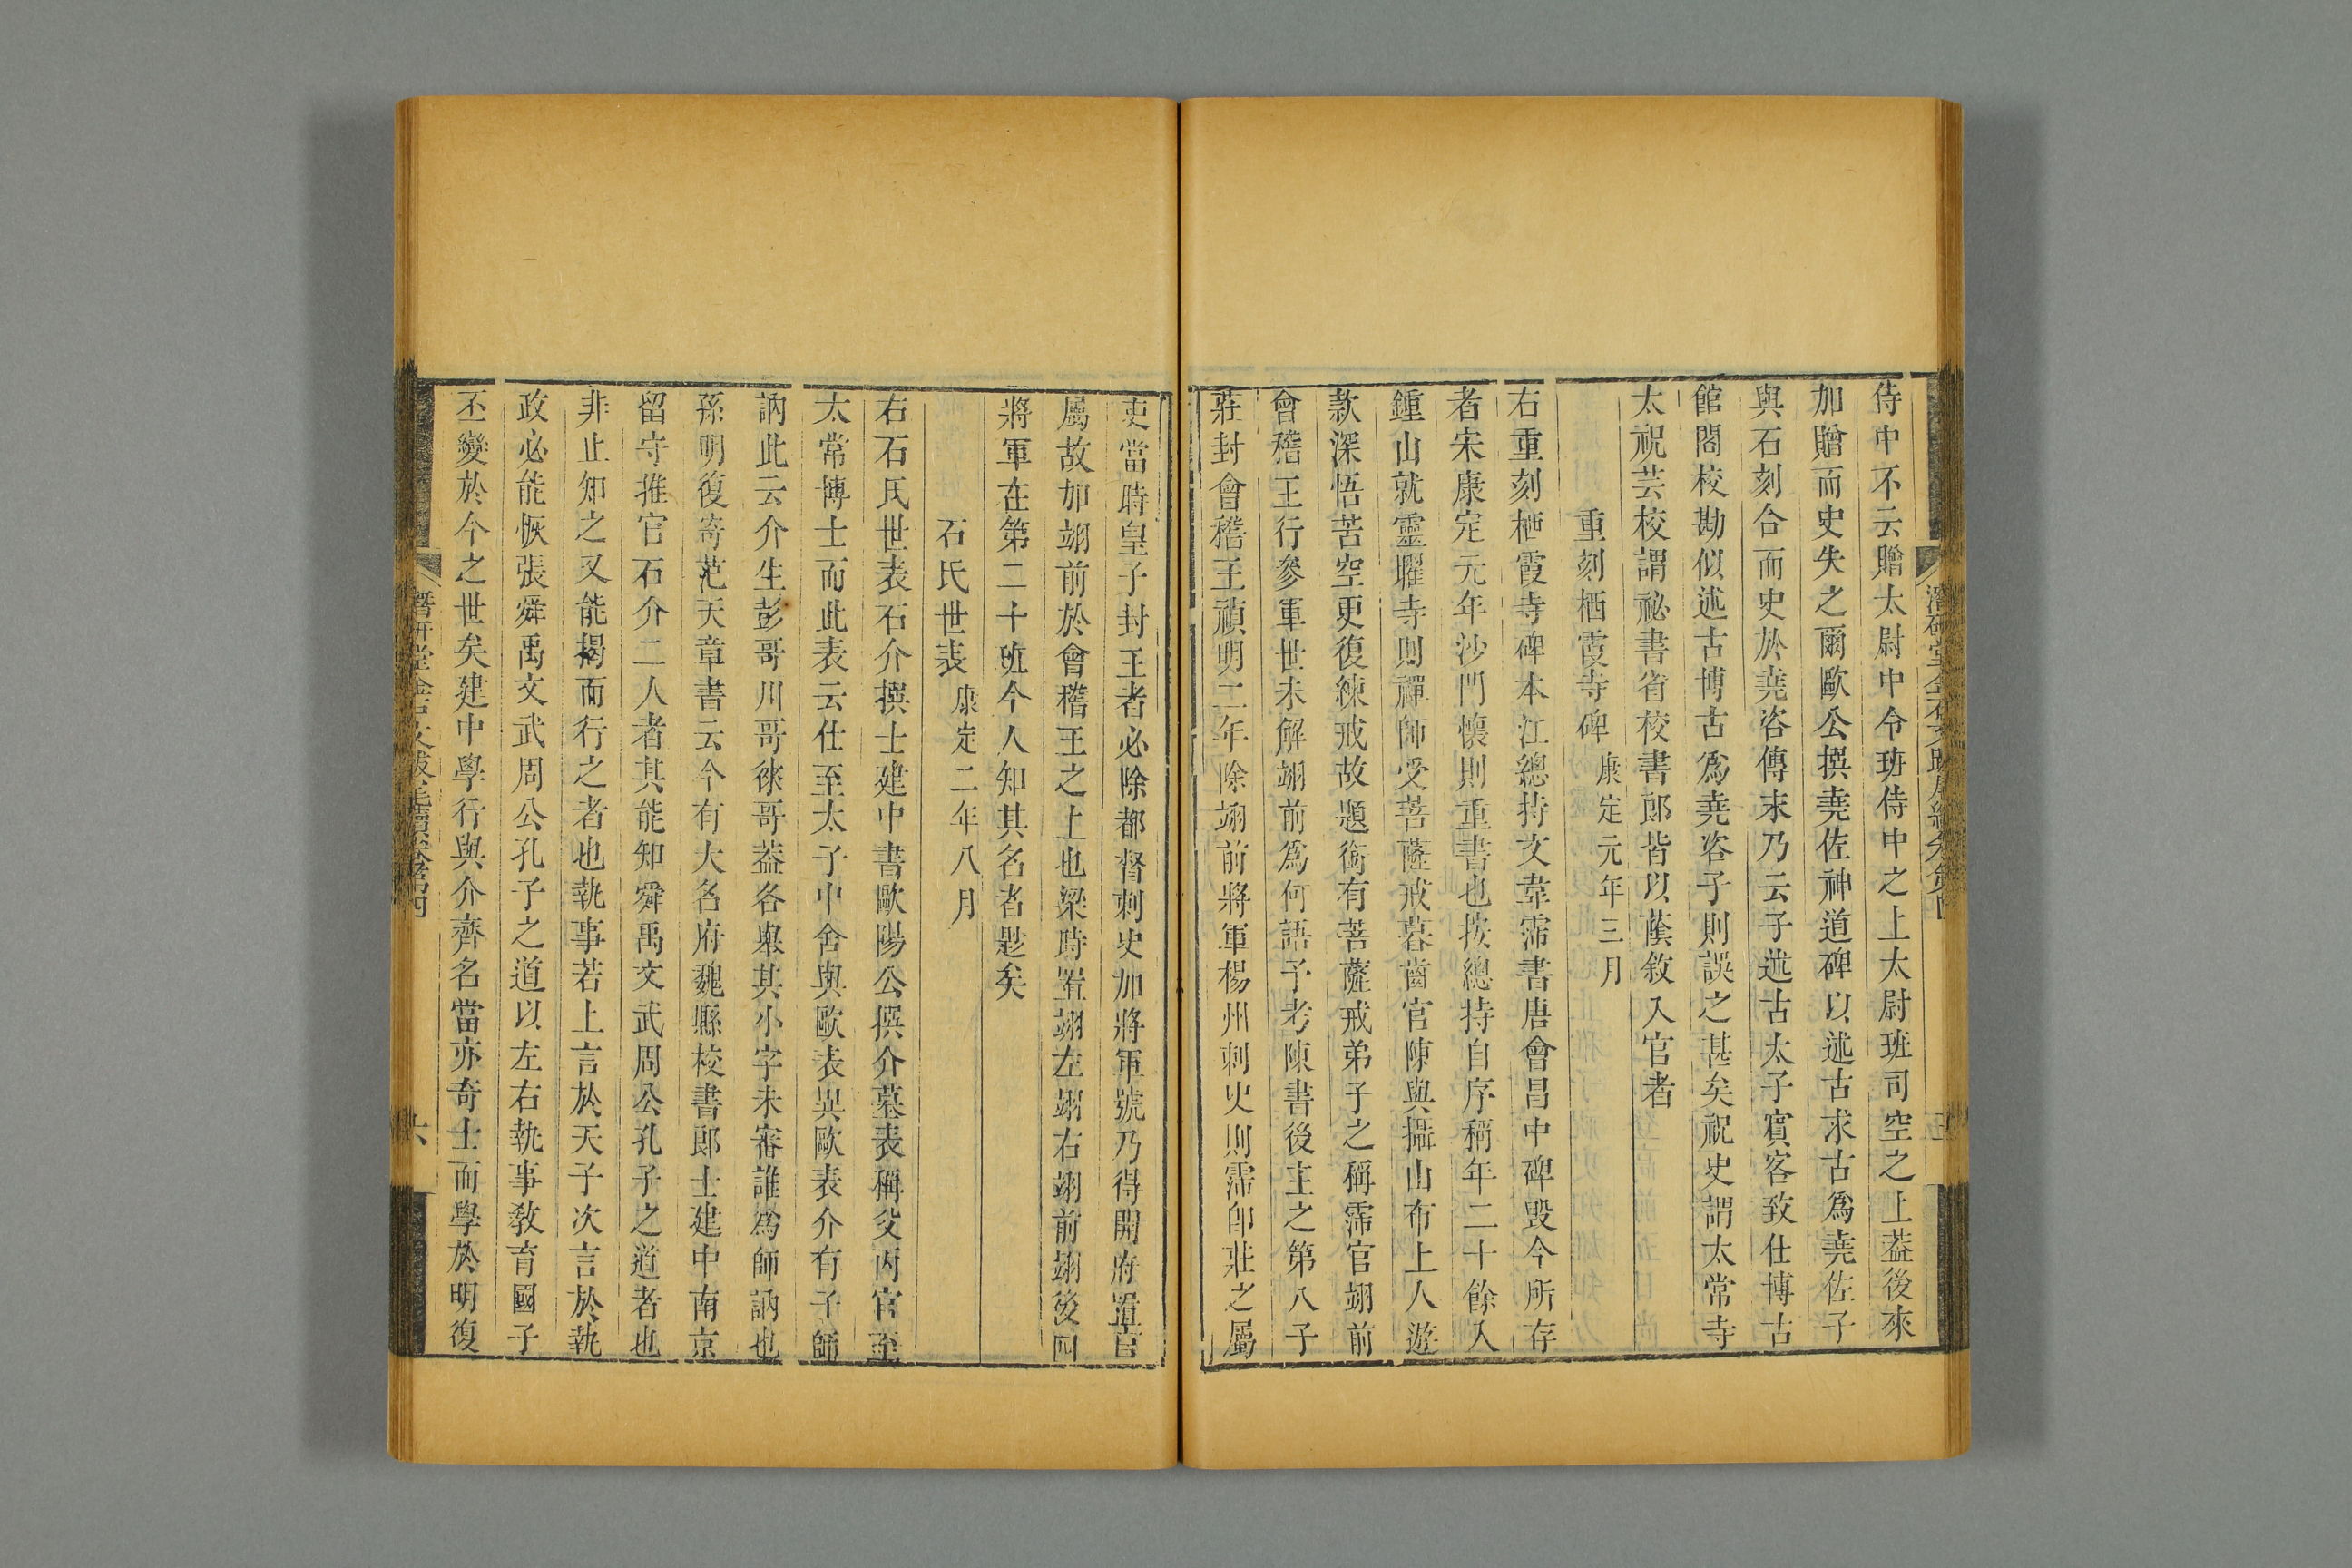 侍中不云贈太尉中令班侍中之上太尉班司空之上葢後來
加贈而史失之爾歐公撰堯佐神道碑以述古求古爲堯佐子
與石刻合而史於堯咨傳末乃云子述古太子賓客致仕博古
館閣校勘似述古博古爲堯咨子則誤之甚矣祝史謂太常寺
太祝芸校謂祕書省校書郎皆以蔭敘入官者
重刻栖霞寺碑 康定元年三月
右重刻栖霞寺碑本江總持文韋霈書唐會昌中碑毀今所存
者宋康定元年沙門懷則重書也按總持自序稱年二十餘入
鍾山就靈曜寺則禪師受菩薩戒暮齒官陳與攝山布上人遊
款深悟苦空更復練戒故題銜有菩薩戒弟子之稱霈官翊前
會稽王行參軍世未解翊前爲何語予考陳書後主之第八子
莊封會稽王禎明二年除翊前將軍楊州刺史則霈卽莊之屬
吏當時皇子封王者必除都督刺史加將軍號乃得開府置官
屬故加翊前於會稽王之上也梁時置翊左翊右翊前翊後四
將軍在第二十班今人知其名者尠矣
石氏世表 康定二年八月
右石氏世表石介撰士建中書歐陽公撰介墓表稱父丙官至
太常博士而此表云仕至太子中舍與歐表異歐表介有子師
訥此云介生彭哥川哥徠哥葢各舉其小字未審誰爲師訥也
孫明復寄范天章書云今有大名府魏縣校書郎士建中南京
留守推官石介二人者其能知舜禹文武周公孔子之道者也
非止知之又能揭而行之者也執事若上言於天子次言於執
政必能恢張舜禹文武周公孔子之道以左右執事敎育國子
丕變於今之世矣建中學行與介齊名當亦奇士而學於明復
潛研堂金石文跋尾續卷第四
六